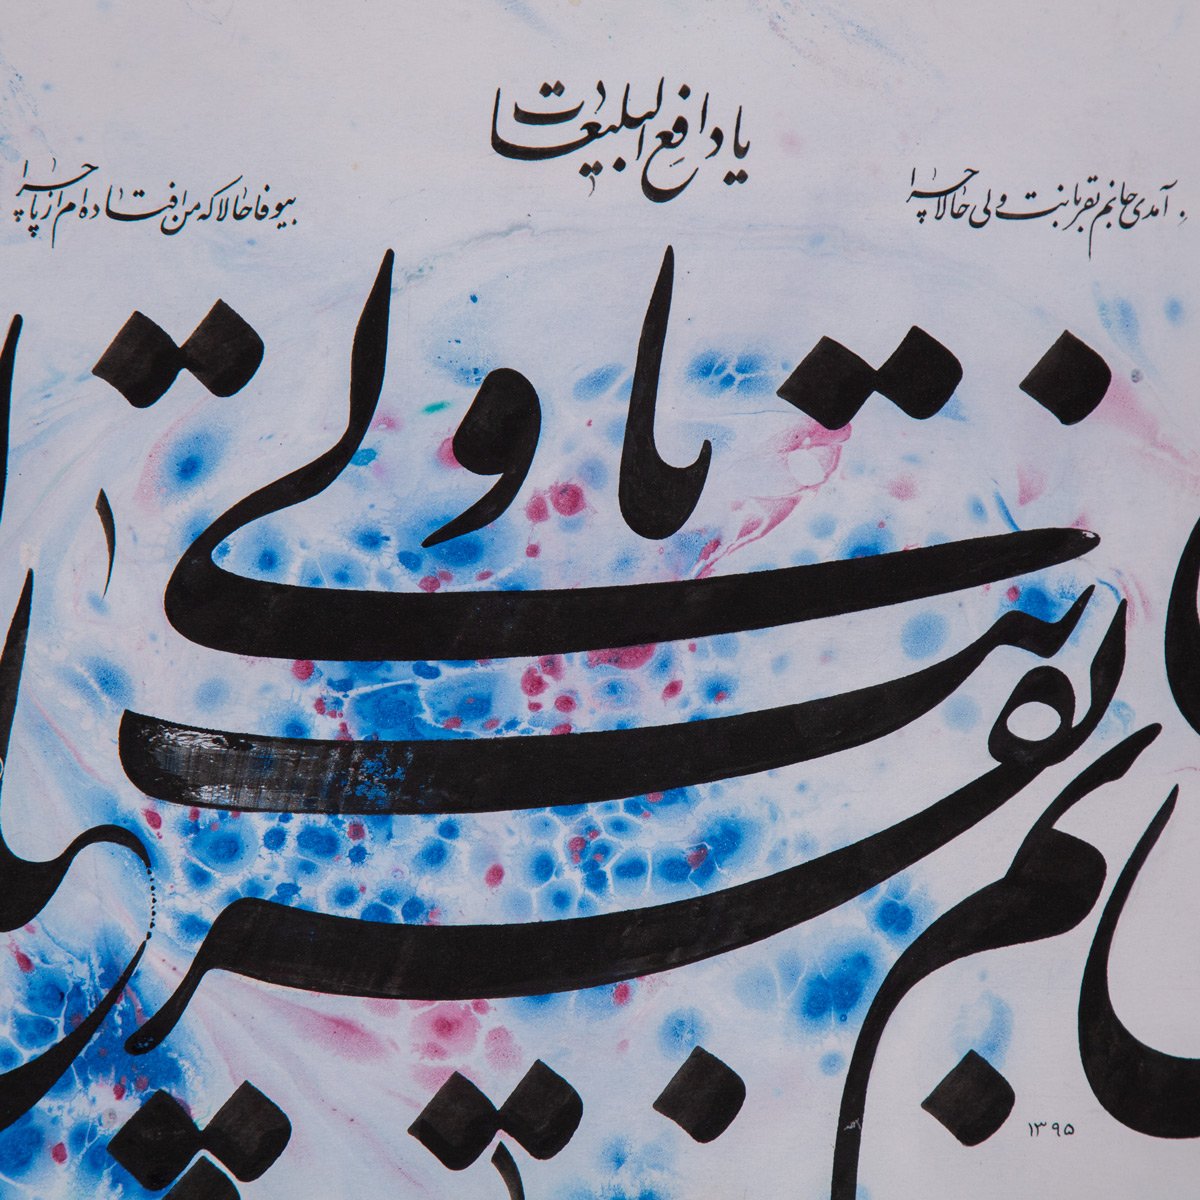 یا دافع البلیات
آمدی جانم بقربانت ولی حالا چرا
بیوفا حالا که من افتاده ام از پا چرا
جانم بقربانت ولی
۱۳۹۵